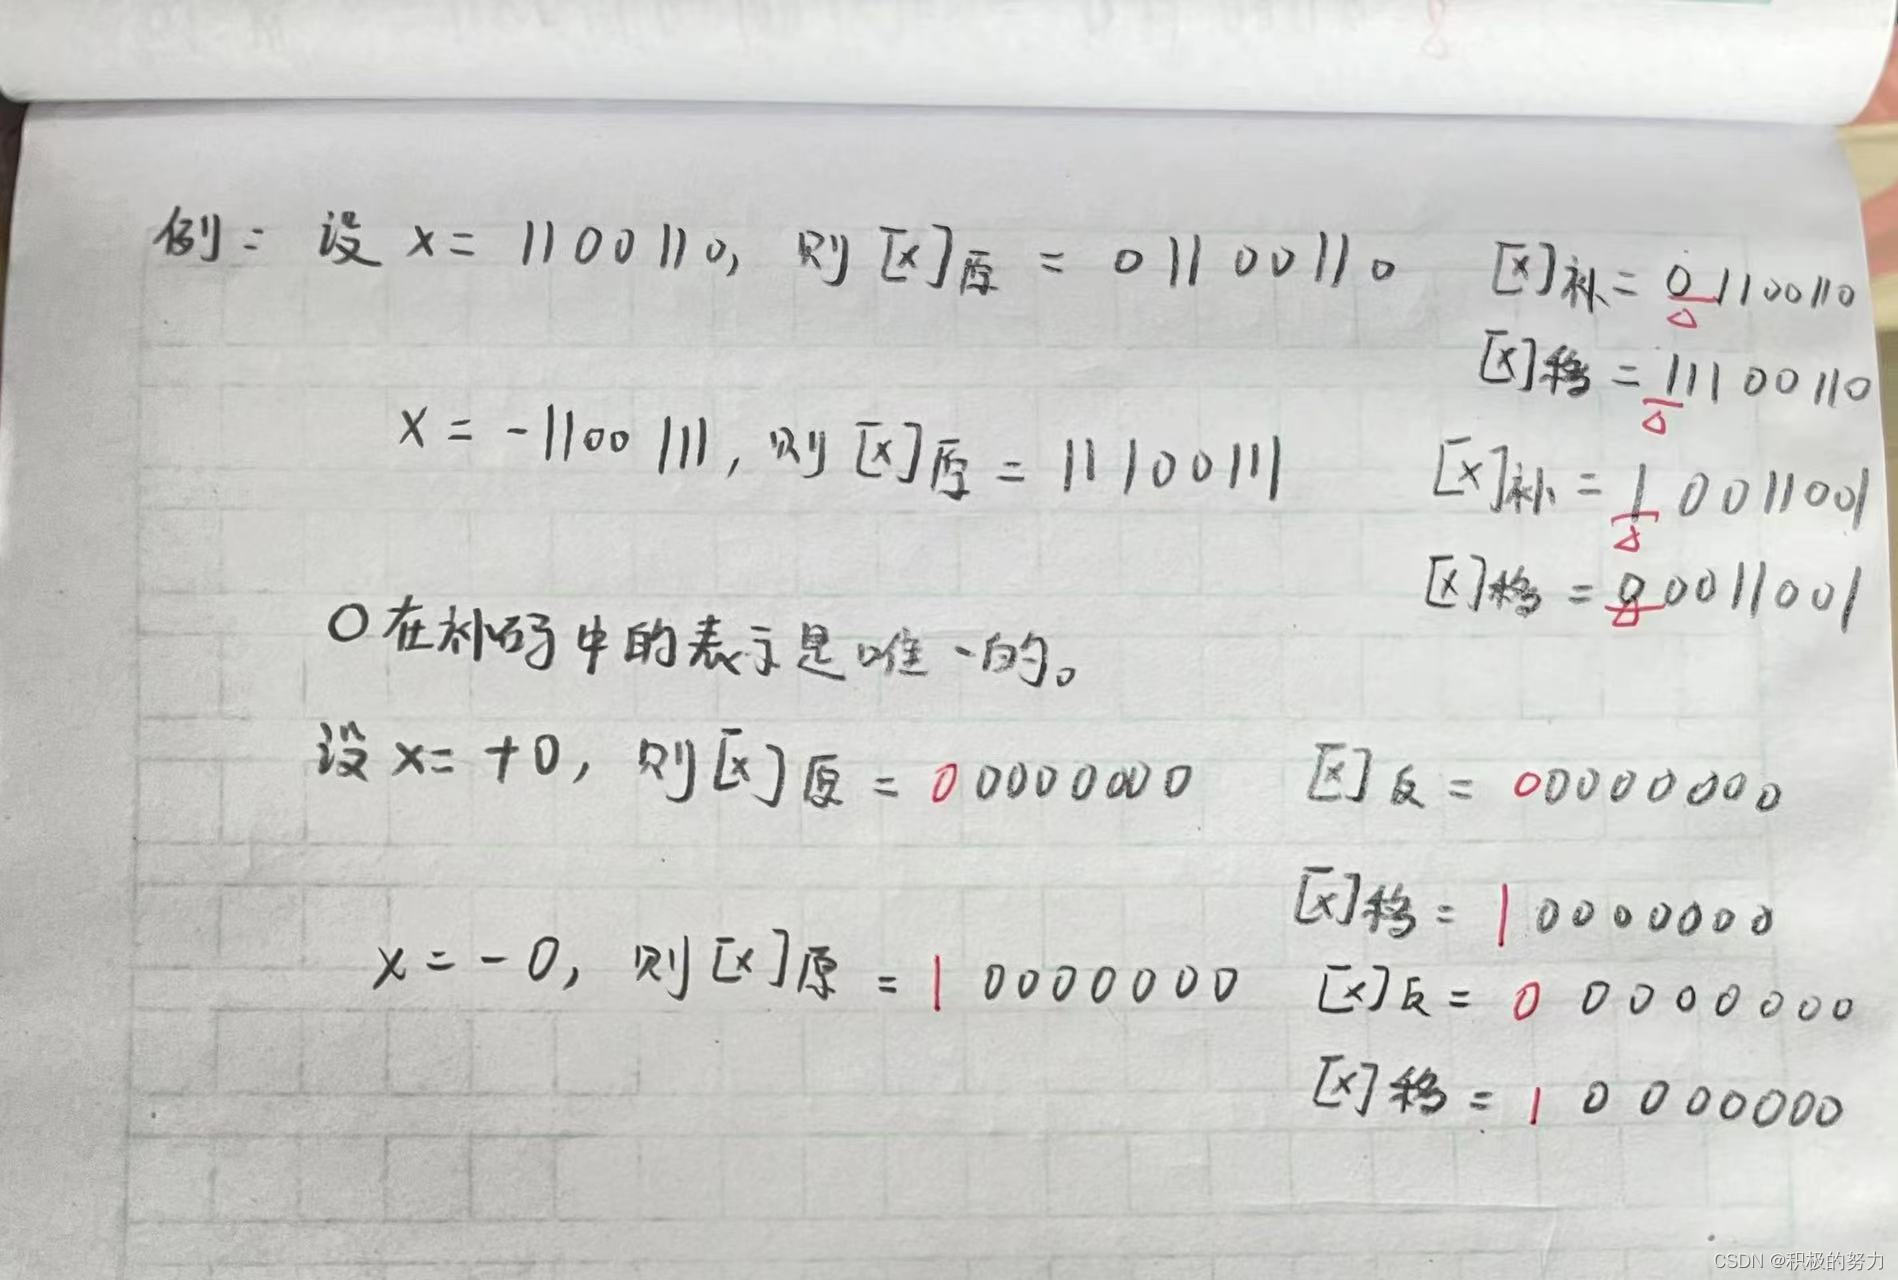 例: 设 x = 1100110, 则 [x]原 = 01100110 [x]补 = 01100110
[x]移 = 11100110
x = -1100111, 则 [x]原 = 11100111 [x]补 = 10011001
[x]移 = 00011001
0在补码中的表示是唯一的。
设 x = +0, 则 [x]原 = 00000000 [x]反 = 00000000
[x]移 = 10000000
x = -0, 则 [x]原 = 10000000 [x]反 = 00000000
[x]移 = 10000000
CSDN @积极的努力